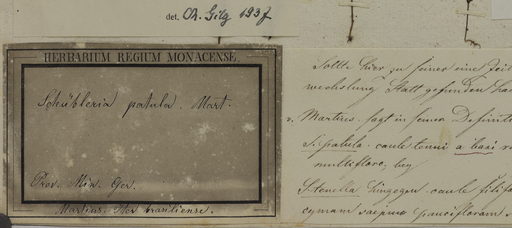 det. Ch. Gilg 1937
HERBARIUM REGIUM MONACENSE.
Schübleria patula. Mart.
Prov. Min. Ger.
Martius. Iter brasiliense.
Sollte hier zu seiner eine
wechslung Statt gefunden
v. Martius sagt in seiner Definit
S. patula. caule tenui a basi
multifloro, bey
S. tenella hingegen caule filif
cymam saepius paucifloram